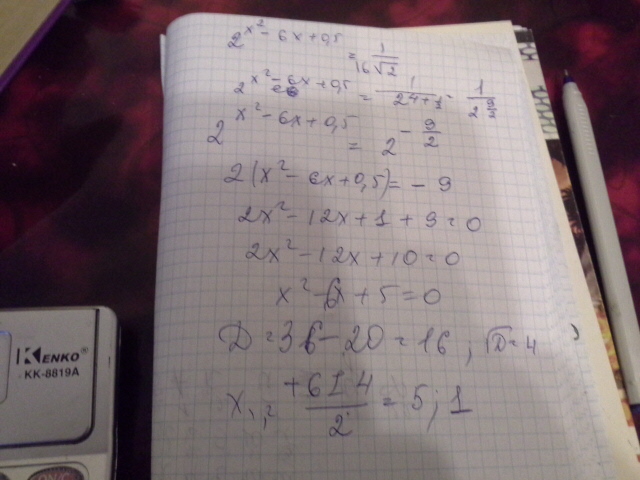 2^{x² - 6x + 0,5} = 1/(16√2)
2^{x² - 6x + 0,5} = 1/(2^{4 + 1/2}) = 1/(2^{9/2})
2^{x² - 6x + 0,5} = 2^{- 9/2}
2(x² - 6x + 0,5) = - 9
2x² - 12x + 1 + 9 = 0
2x² - 12x + 10 = 0
x² - 6x + 5 = 0
D = 36 - 20 = 16 ; √D = 4
x₁,₂ = (+6 ± 4)/2 = 5 ; 1
KENKO®
KK-8819A